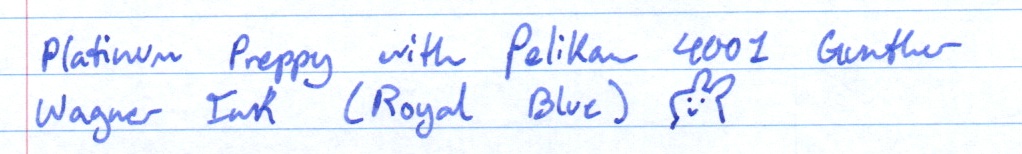 Platinum Preppy with Pelikan 4001 Gunther
Wagner Ink (Royal Blue)